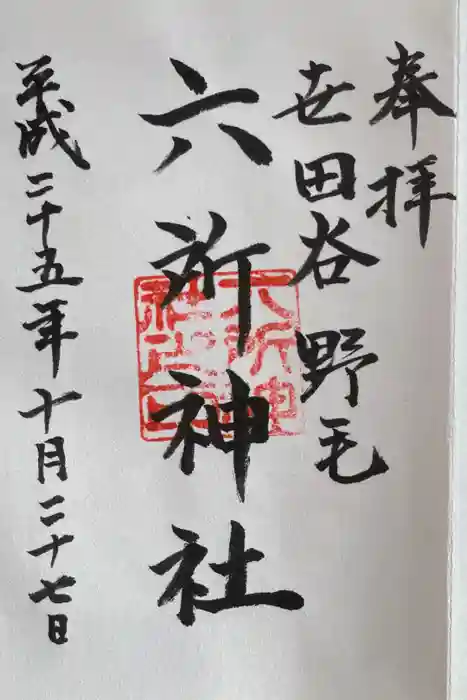 奉拝
世田谷野毛
六所神社
平成二十五年十月二十七日